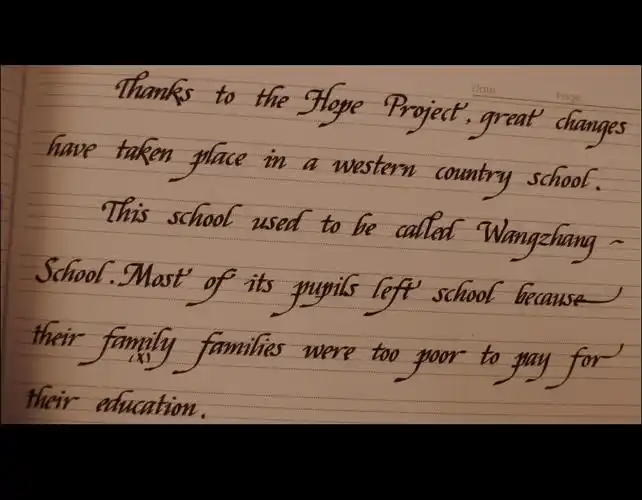 Date Page
Thanks to the Hope Project, great changes
have taken place in a western country school.
This school used to be called Wangzhang -
School. Most of its pupils left school because
their family families were too poor to pay for
(X)
their education.